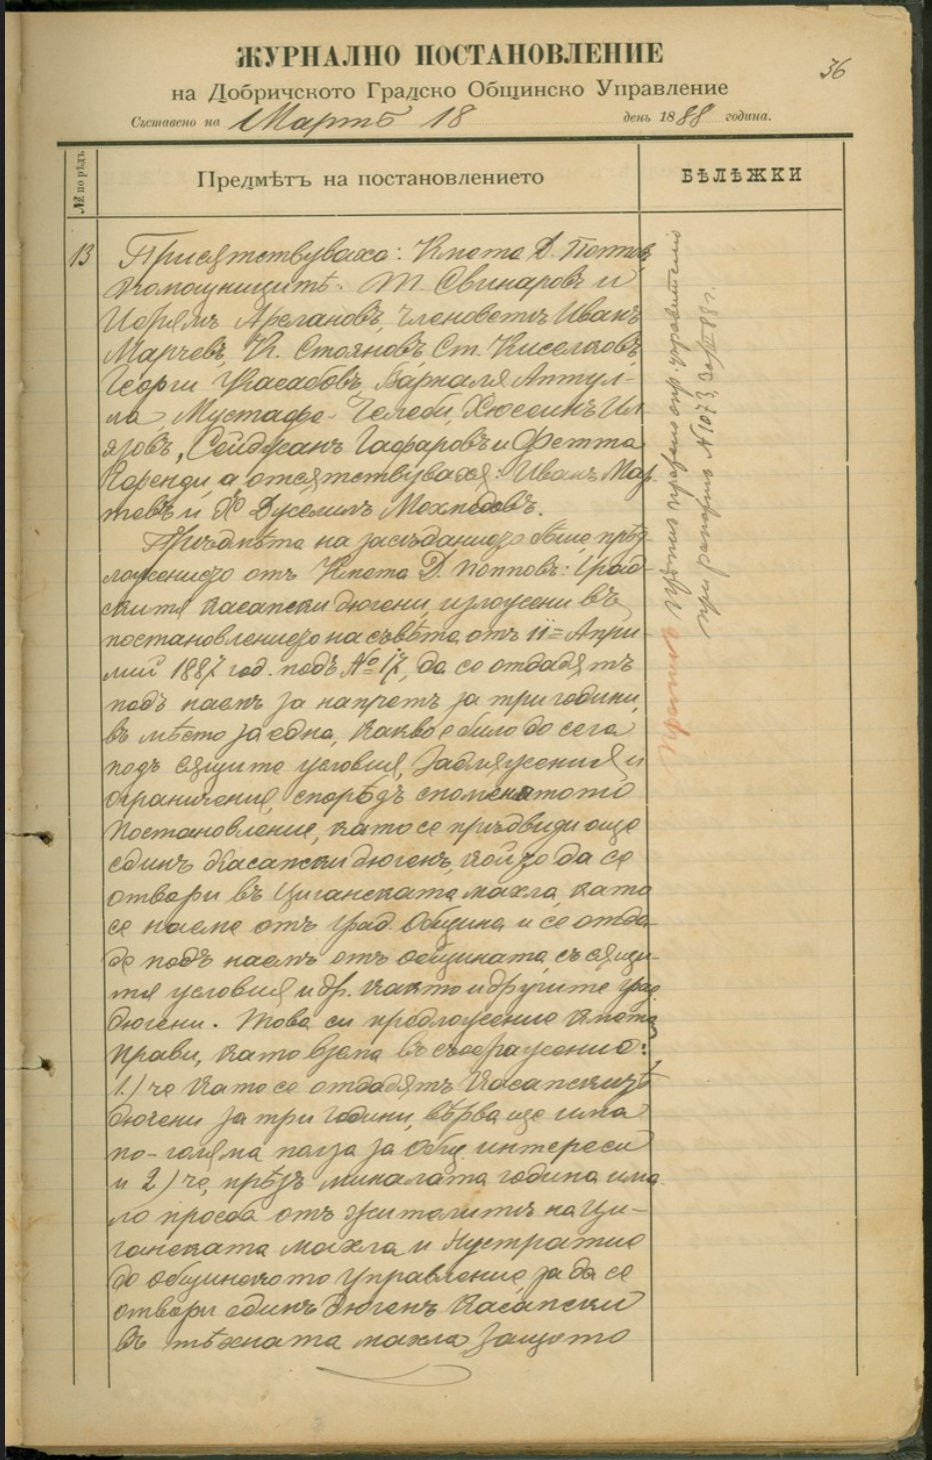 ЖУРНАЛНО ПОСТАНОВЛЕНИЕ
36
на Добричското Градско Общинско Управление
Съставено на Мартъ 18 день 1888 година.
№ по рѣдъ
Предмѣтъ на постановлението
БѢЛѢЖКИ
13
Присѫтствуваха: Кмета Д. Поповъ,
Помощницитѣ: М. Свинаровъ и
Арслановъ, членоветѣ Иванъ
Марчевъ, К. Стояновъ, Ст. Киселковъ,
Георги Касабовъ, Аптул-
ла, Мустафа Челеби, Хюсеинъ Ил
язовъ, Сейджанъ Гафаровъ и Фетта
Коренди, а отсѫтствуваха: Иванъ Мар-
тевъ и Х Джелилъ Мохмедовъ.
Предмѣта на заседанието бѣше прѣд-
ложението отъ Кмета Д. Попповъ: Град-
скитѣ касапски дюгени, изложени въ
постановлението на съвѣта отъ 11 Апри-
лий 1887 год. подъ № 17, да се отдадѫтъ
подъ наемъ за напретъ за три години,
въ мѣсто за една, какво е било до сега
подъ сѫщите условия, задлъжения и
ограничения, спорѣдъ споменатото
постановление, като се прѣдвиди още
единъ касапски дюгенъ, който да се
отвори въ Циганската махла, като
се наеме отъ град. Община и се отда-
де подъ наемъ отъ общината, съ сѫщи-
тѣ условия и др. както и другите град.
дюгени. Това си предложение Кмета
прави, като взема въ съображение:
1.) че като се отдадѫтъ касапскитѣ
дюгени за три години, вѣрва ще има
по-голѣма полза за общ. интереси
и 2) че, прѣзъ миналата година има-
ло просба отъ жителитѣ на Ци-
ганската махла и
до общинското управление за да се
отвори единъ дюгенъ касапски
въ тѣхната махла, защото
Препис препис окр. управителю
при рапортъ № 1073, 30/III 88 г.